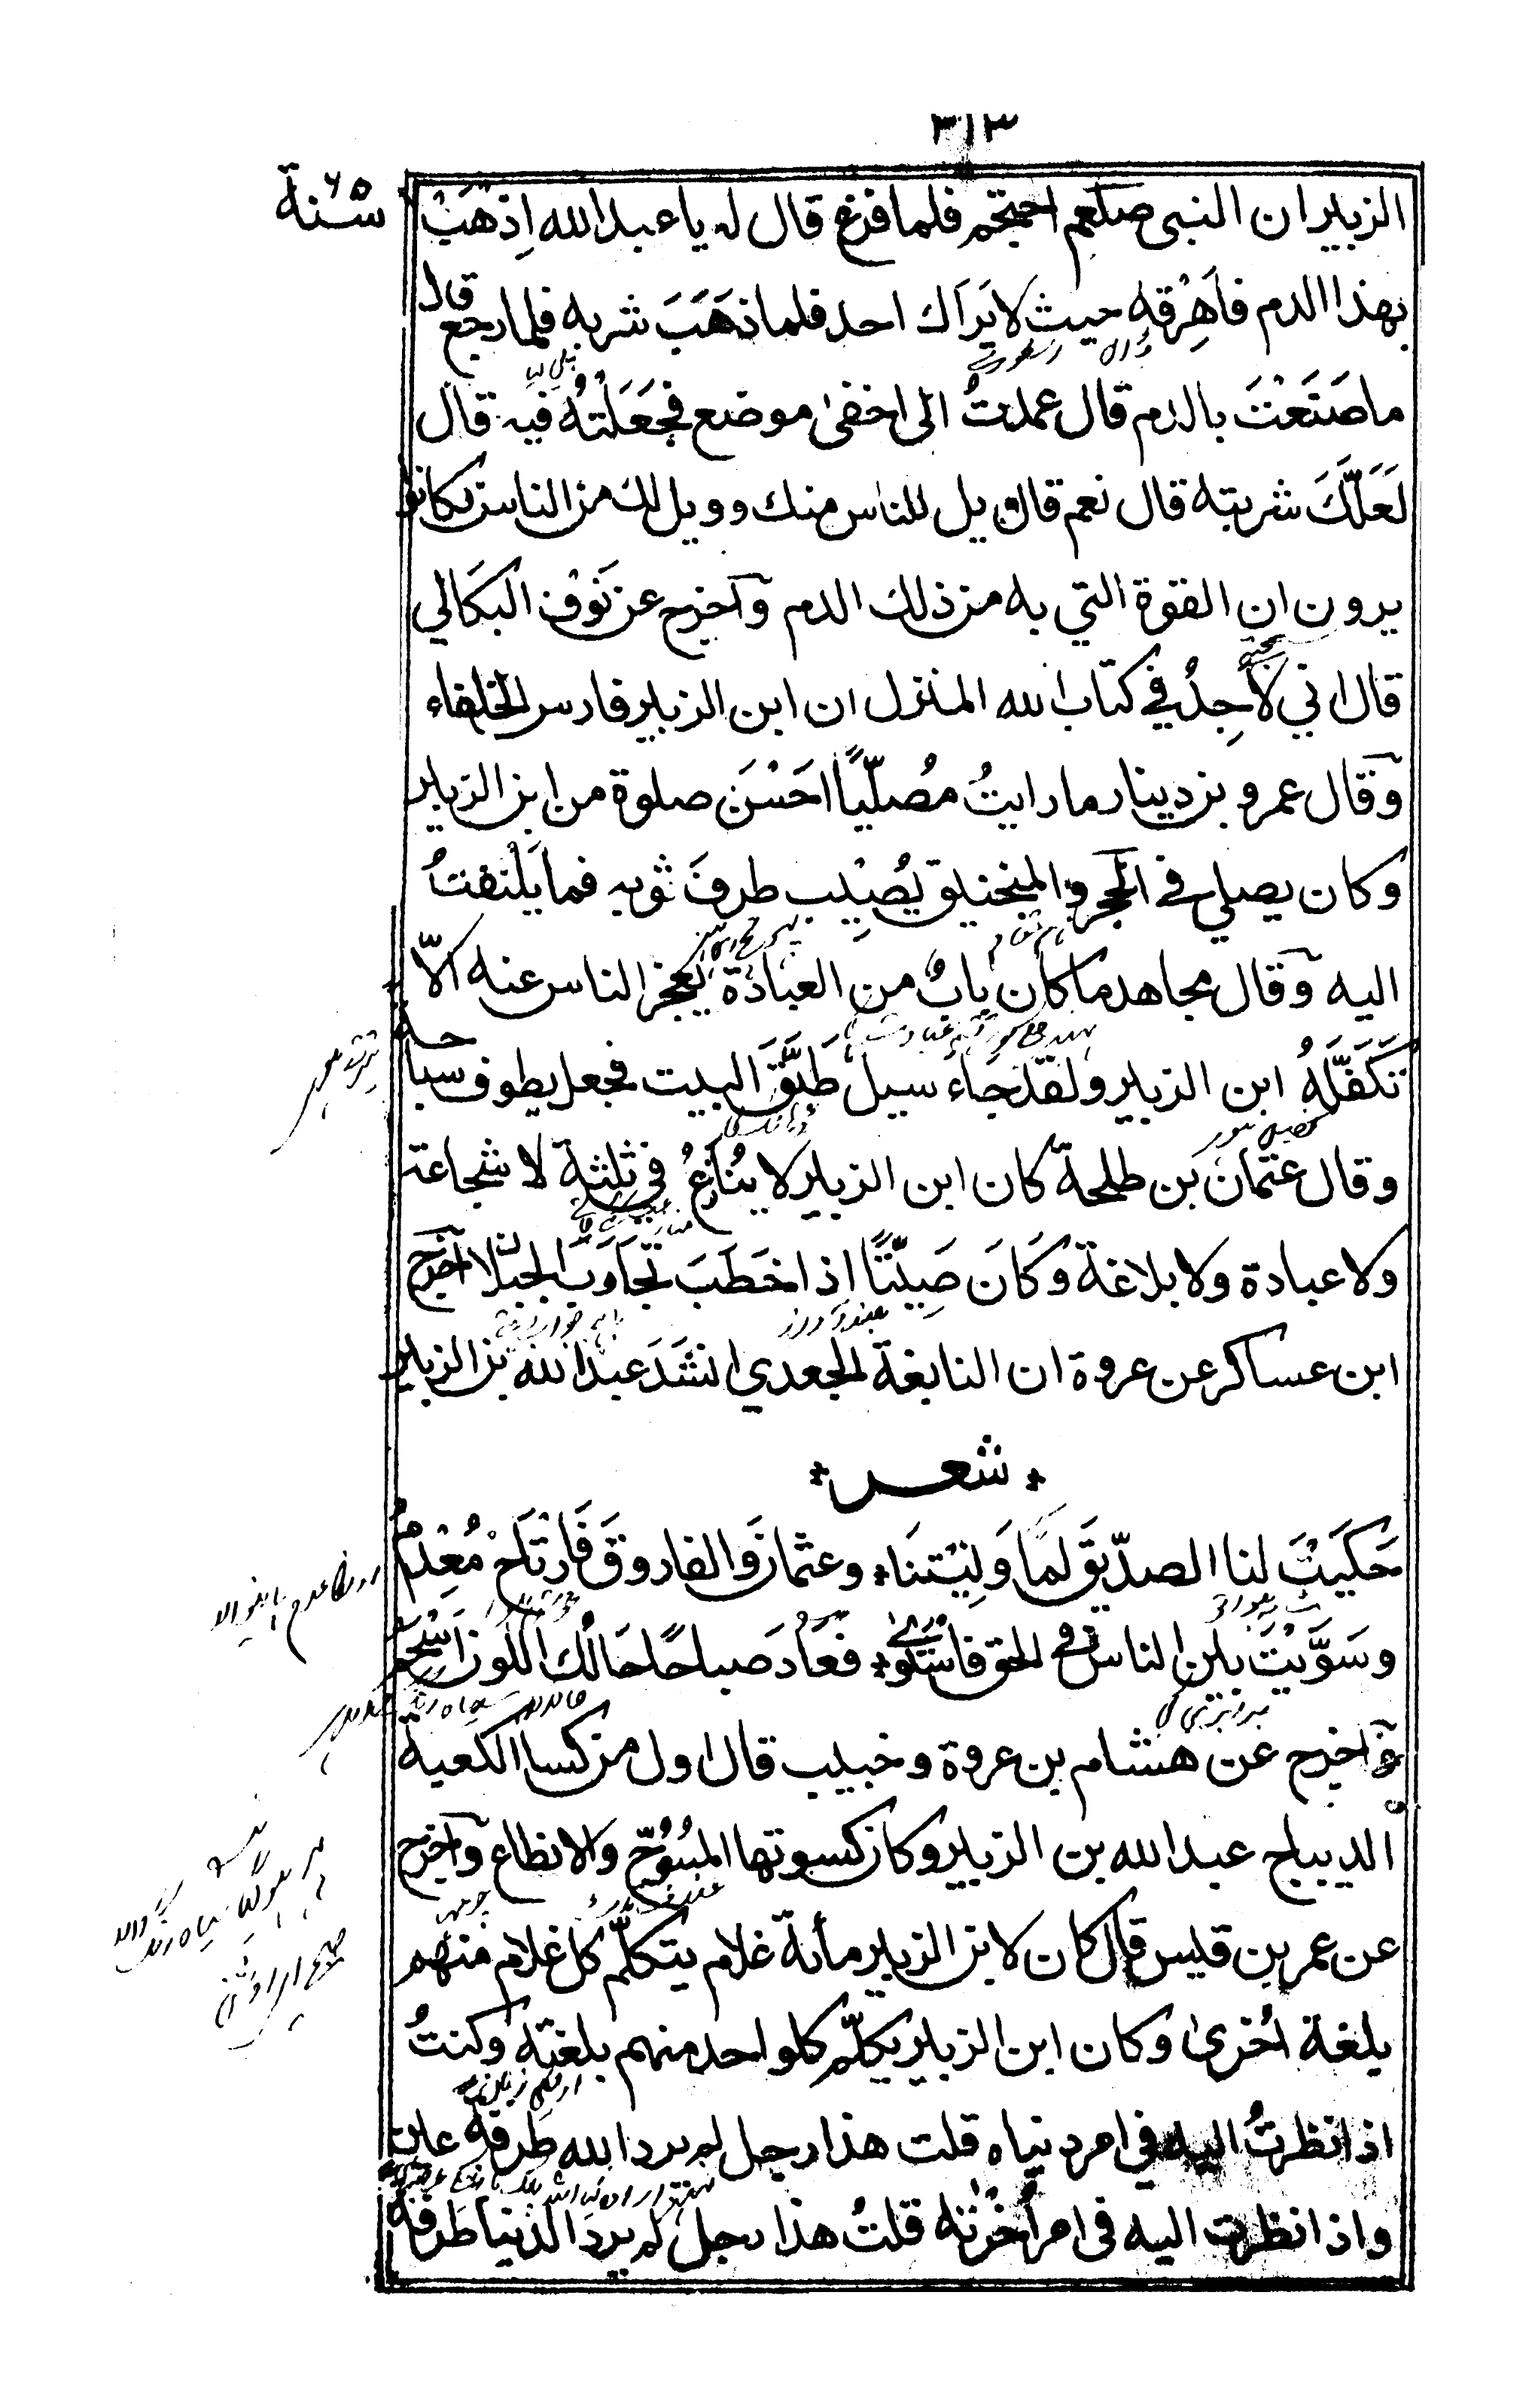 ٣١٣
سنة ٦٥
الزبير ان النبى صلعم احتجم فلما فرغ قال له يا عبد الله اِذهَبْ
بهذا الدم فاَهِرْقه حيث لا يَراَك احد فلما ذهَبَ شربه فلما رجع قال
ما صَنَعْتَ بالدم قال عمدتُ الى اخفى موضع فجَعَلْتُهُ فيه قال
لَعَلَّكَ شربته قال نعم قال ويل للناس منك وويل لك من الناس فكانوا
يرون ان القوة التي به من ذلك الدم وآخرج عن نَوْف البكَالي
قال اني لاَجِدُ في كتاب الله المنزل ان ابن الزبير فارس الخلفاء
وقال عمرو بن دينار ما رايتُ مُصلّيًا احَسْنَ صلوة من ابن الزبير
وكان يصلي في الحجر والمنجنيق يُصِيْب طرفَ ثوبه فما يَلْتفتُ
اليه وقال مجاهد ما كان بابٌ من العبادة يعجز الناس عنه الّا
تَكَفَّلَهُ ابن الزبير ولقد جاء سيل طَبَّقَ البيت فجعل يطوف سباحة
وقال عثمان بن طلحة كان ابن الزبير لا يُنازَعُ في ثلثة لا شجاعة
ولا عبادة ولا بلاغة وكَانَ صَيِّتًا اذا خطَبَ تجَاوَبَ الجبلان آخرج
ابن عساكر عن عروة ان النابغة الجعدي انشَدَ عبد الله بن الزبير
* شعر *
حَكَيْتَ لنا الصدّيق لمَّا وَلِيْتَنَا * وعثمانَ والفاروقَ فَارْتَاحْ مُعْدِمُ
وسَوَّيْتَ بين الناس في الحق فاستَووْا * فعَادَ صباحًا حَالكُ اللون اَسْحَمُ
وآخرج عن هشام بن عروة وخبيب قال اول من كسا الكعبة
الديباج عبد الله بن الزبير وكان كسوتها المُسُوْحُ والانطاع وآخرج
عن عمر بن قيس قال كان لابن الزبير مأىة غلام يتكلَّم كل غلام منهم
بلغة اُخرىٰ وكان ابن الزبير يكلّم كلواحد منهم بلغته وكنتُ
اذا نظرتُ اليه في امر دنياه قلت هذا رجل لم يرد الله طَرفةَ عين
واذا نظرت اليه في امر اُخْرٰىه قلتُ هذا رجل لم يرد الدنيا طَرفةَ